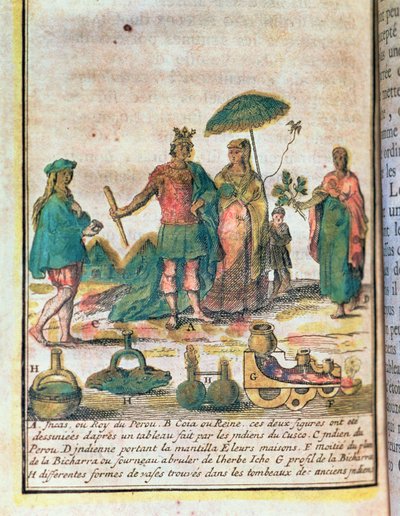 nt peu
cepté
s une
mette
mme
ordin
e les
C
A
D
H
H
H
G
F
A Jncas, ou Roy du Perou. B Coia ou Reine. ces deux figures ont eté
dessinieés d'aprés un tableau fait par les jndiens du Cusco. C jndien du
Perou. D jndienne portant la mantilla E leurs maisons. F moitié du plan
de la Bicharra ou fourneau abruler de l'herbe Icho G profil de la Bicharra
H differentes formes de vases trouvés dans les tombeaux de anciens jndiens